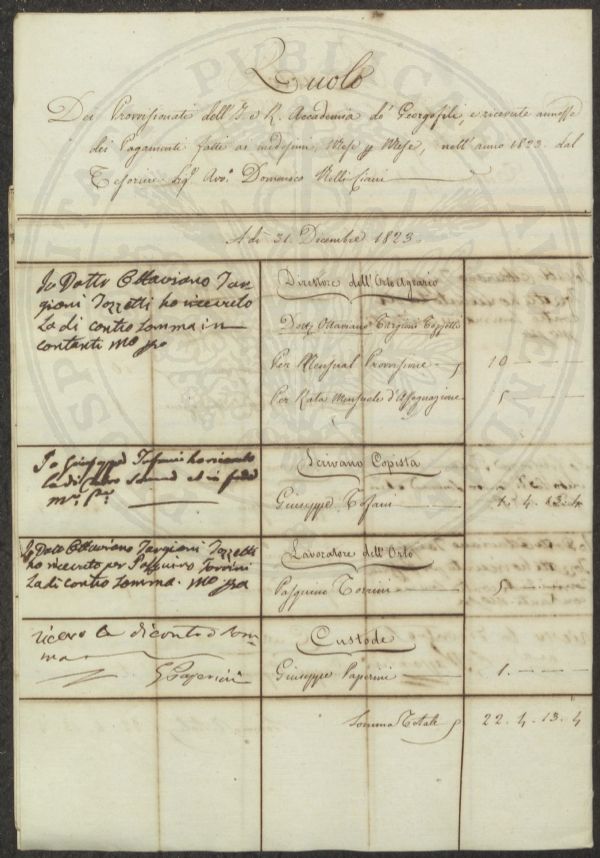 Ruolo
Dei Provvisionati dell'I. e R. Accademia de' Georgofili, e ricevute annesse
dei Pagamenti fatti ai medesimi, Mese p Mese, nell'anno 1823. dal
Tesoriere Sigr. Avv. Domenico Nelli Ciani
A di 31. Dicembre 1823.
Io Dottr Ottaviano Tar=
gioni Tozzetti ho ricevuto
La di contro Somma in
contanti Mo ppa
Direttore dell'Orto Agrario
Dottr Ottaviano Targioni Tozzetti
Per Mensual Provvisione 10
Per Rata Mensuale d'Assegnazione 5
Io Giuseppe Tofani ho ricevuto
la di Contro Somma et in fede
Scrivano Copista
Giuseppe Tofani 1. 4. 13. 4
Io Dottr Ottaviano Targioni Tozzetti
ho ricevuto per Pasquino Torrini
La di contro Somma. Mo ppa
Lavoratore dell'Orto
Pasquino Torrini 5
ricevo La di contro Som=
ma
G Paperini
Custode
Giuseppe Paperini 1.
Somma Totale 22. 4. 13. 4